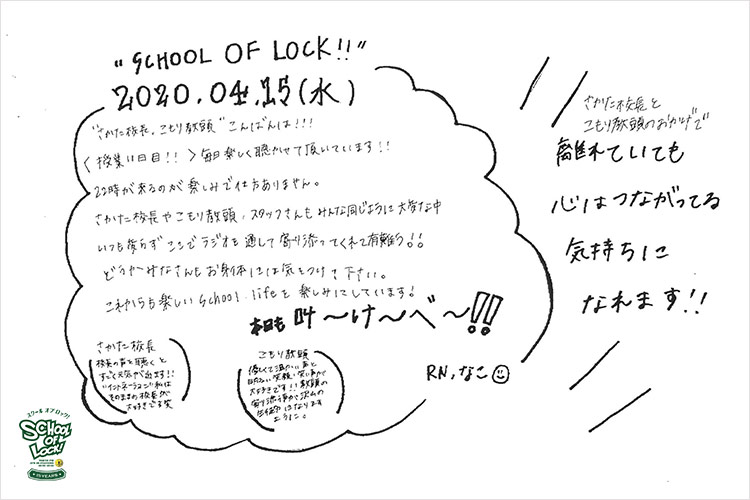 "SCHOOL OF LOCK!!"
2020.04.15(水)
"さかた校長、こもり教頭"こんばんは!!!
<授業11日目!!>毎日楽しく聴かせて頂いています!!
22時が来るのが楽しみで仕方ありません。
さかた校長やこもり教頭、スタッフさんもみんな同じように大変な中
いつも変らずここでラジオを通して寄り添ってくれて有難う!!
どうかみなさんもお身体には気をつけて下さい。
これからも楽しいSchool lifeを楽しみにしています!
本日も叫〜け〜べ〜!!
さかた校長
校長の声を聴くと
すごく元気が出ます!!
私は
そのままの校長が
大好きです笑
こもり教頭
優しくて温かい声と
明るい笑顔、笑い声が
大好きです!!教頭の
寄り添う声が沢山の
生徒の になります
ように。
RN,なこ
さかた校長と
こもり教頭のおかげで
離れていても
心はつながってる
気持ちに
なれます!!
スクール オブ ロック!
SCHOOL
OF
LOCK!
15 YEARS